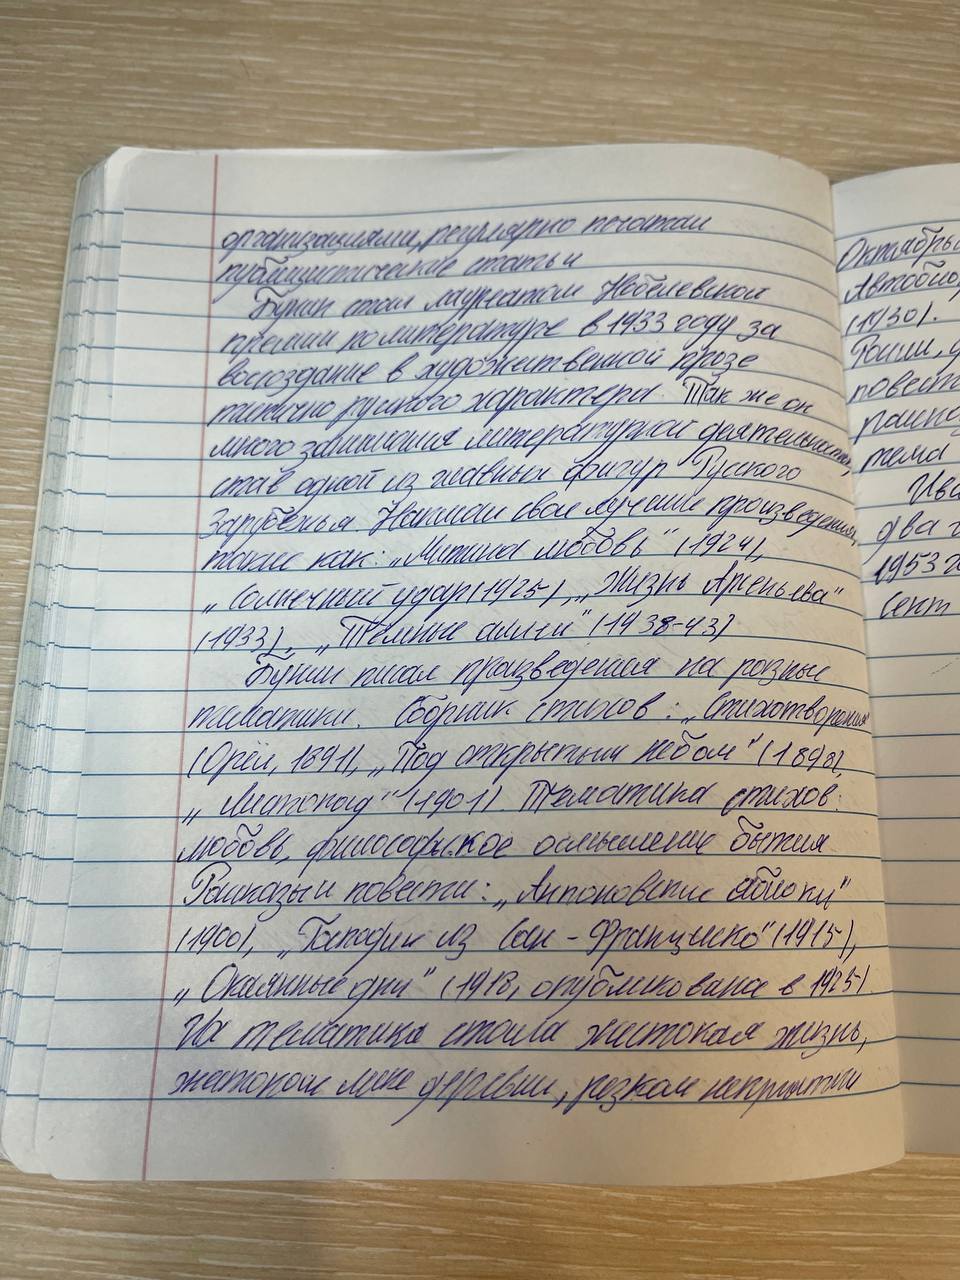 организациями, регулярно печатал
публицистические статьи
Бунин стал лауреатом Нобелевской
премии по литературе в 1933 году за
воссоздание в художественной прозе
типично русского характера. Так же он
много занимался литературной деятельностью,
став одной из главных фигур Русского
Зарубежья. Написал свои лучшие произведения,
такие как: „Митина любовь" (1924),
„Солнечный удар (1925), „Жизнь Арсеньева"
(1933), „Тёмные аллеи" (1938-43)
Бунин писал произведения на разные
тематики. Сборник стихов: „Стихотворения
(Орёл, 1891), „Под открытым небом" (1898),
„Листопад" (1901). Тематика стихов:
любовь, философское осмысление бытия
Рассказы и повести: „Антоновские яблоки"
(1900), „Господин из Сан-Франциско" (1915),
„Окаянные дни" (1918, опубликована в 1925)
Их тематика стала жестокая жизнь,
жестоком мире деревни, резком неприятии
Октябрьс
Автобиог
(1930).
повест
тема
Ива
два г
1953 г
сент